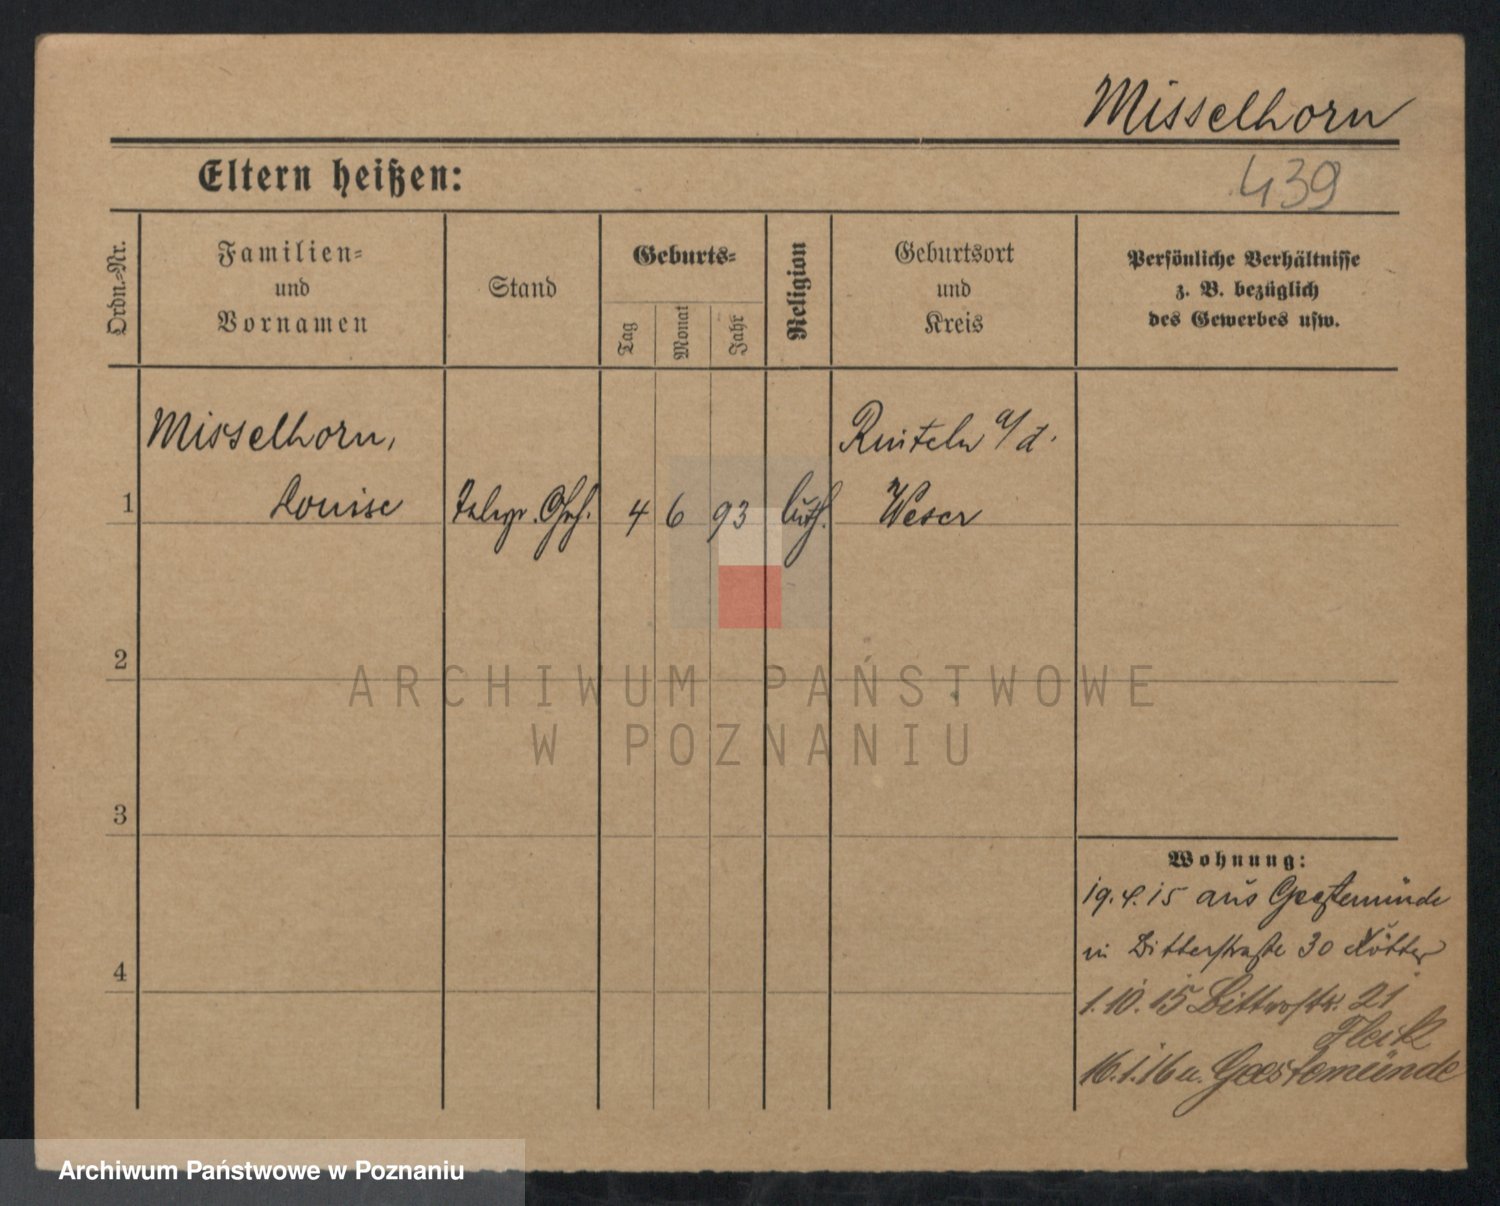 Misselhorn
Eltern heißen:
439
Ordn.-Nr.
Familien-
und
Vornamen
Stand
Geburts-
Tag
Monat
Jahr
Religion
Geburtsort
und
Kreis
Persönliche Verhältnisse
z. B. bezüglich
des Gewerbes usw.
Misselhorn,
Rinteln a/d.
1
Louise
Telegr. Geh.
4
6
93
luth.
Weser
2
3
4
Wohnung:
19.4.15 aus Geestemünde
in Bitterstraße 30
1.10.15 Bitterstr. 21
16.1.16 n. Geestemünde
ARCHIWUM PAŃSTWOWE
W POZNANIU
Archiwum Państwowe w Poznaniu